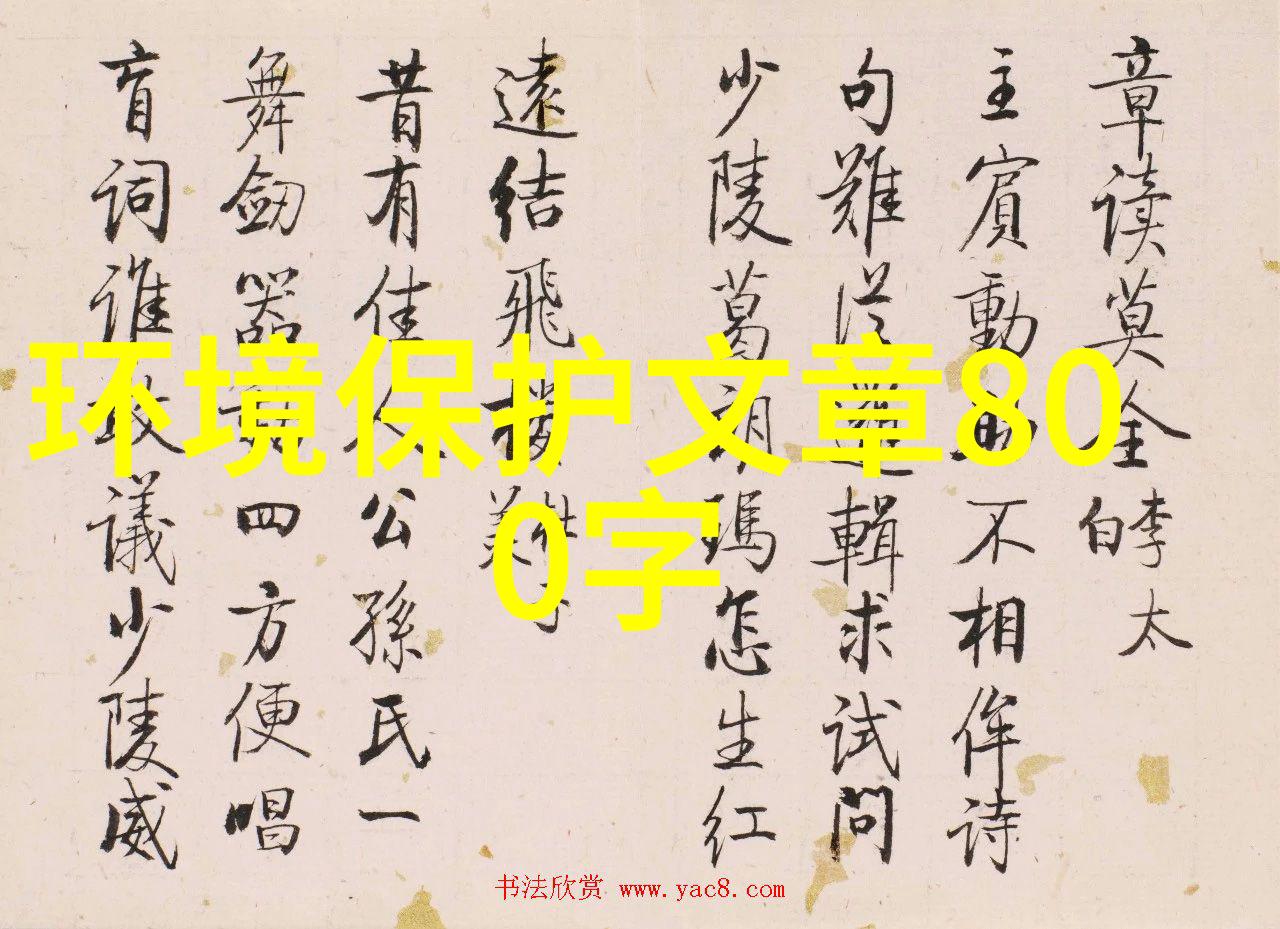 环境保护文章80
0字
章读莫全李太
白
主賓動不相侔诗
句難従邏輯求试問
少陵葛朗瑪怎生红
遠结飛樓
昔有佳人公孫氏一
舞劒器四方便唱
盲词谁敢議少陵威
书法欣赏 www.yac8.com